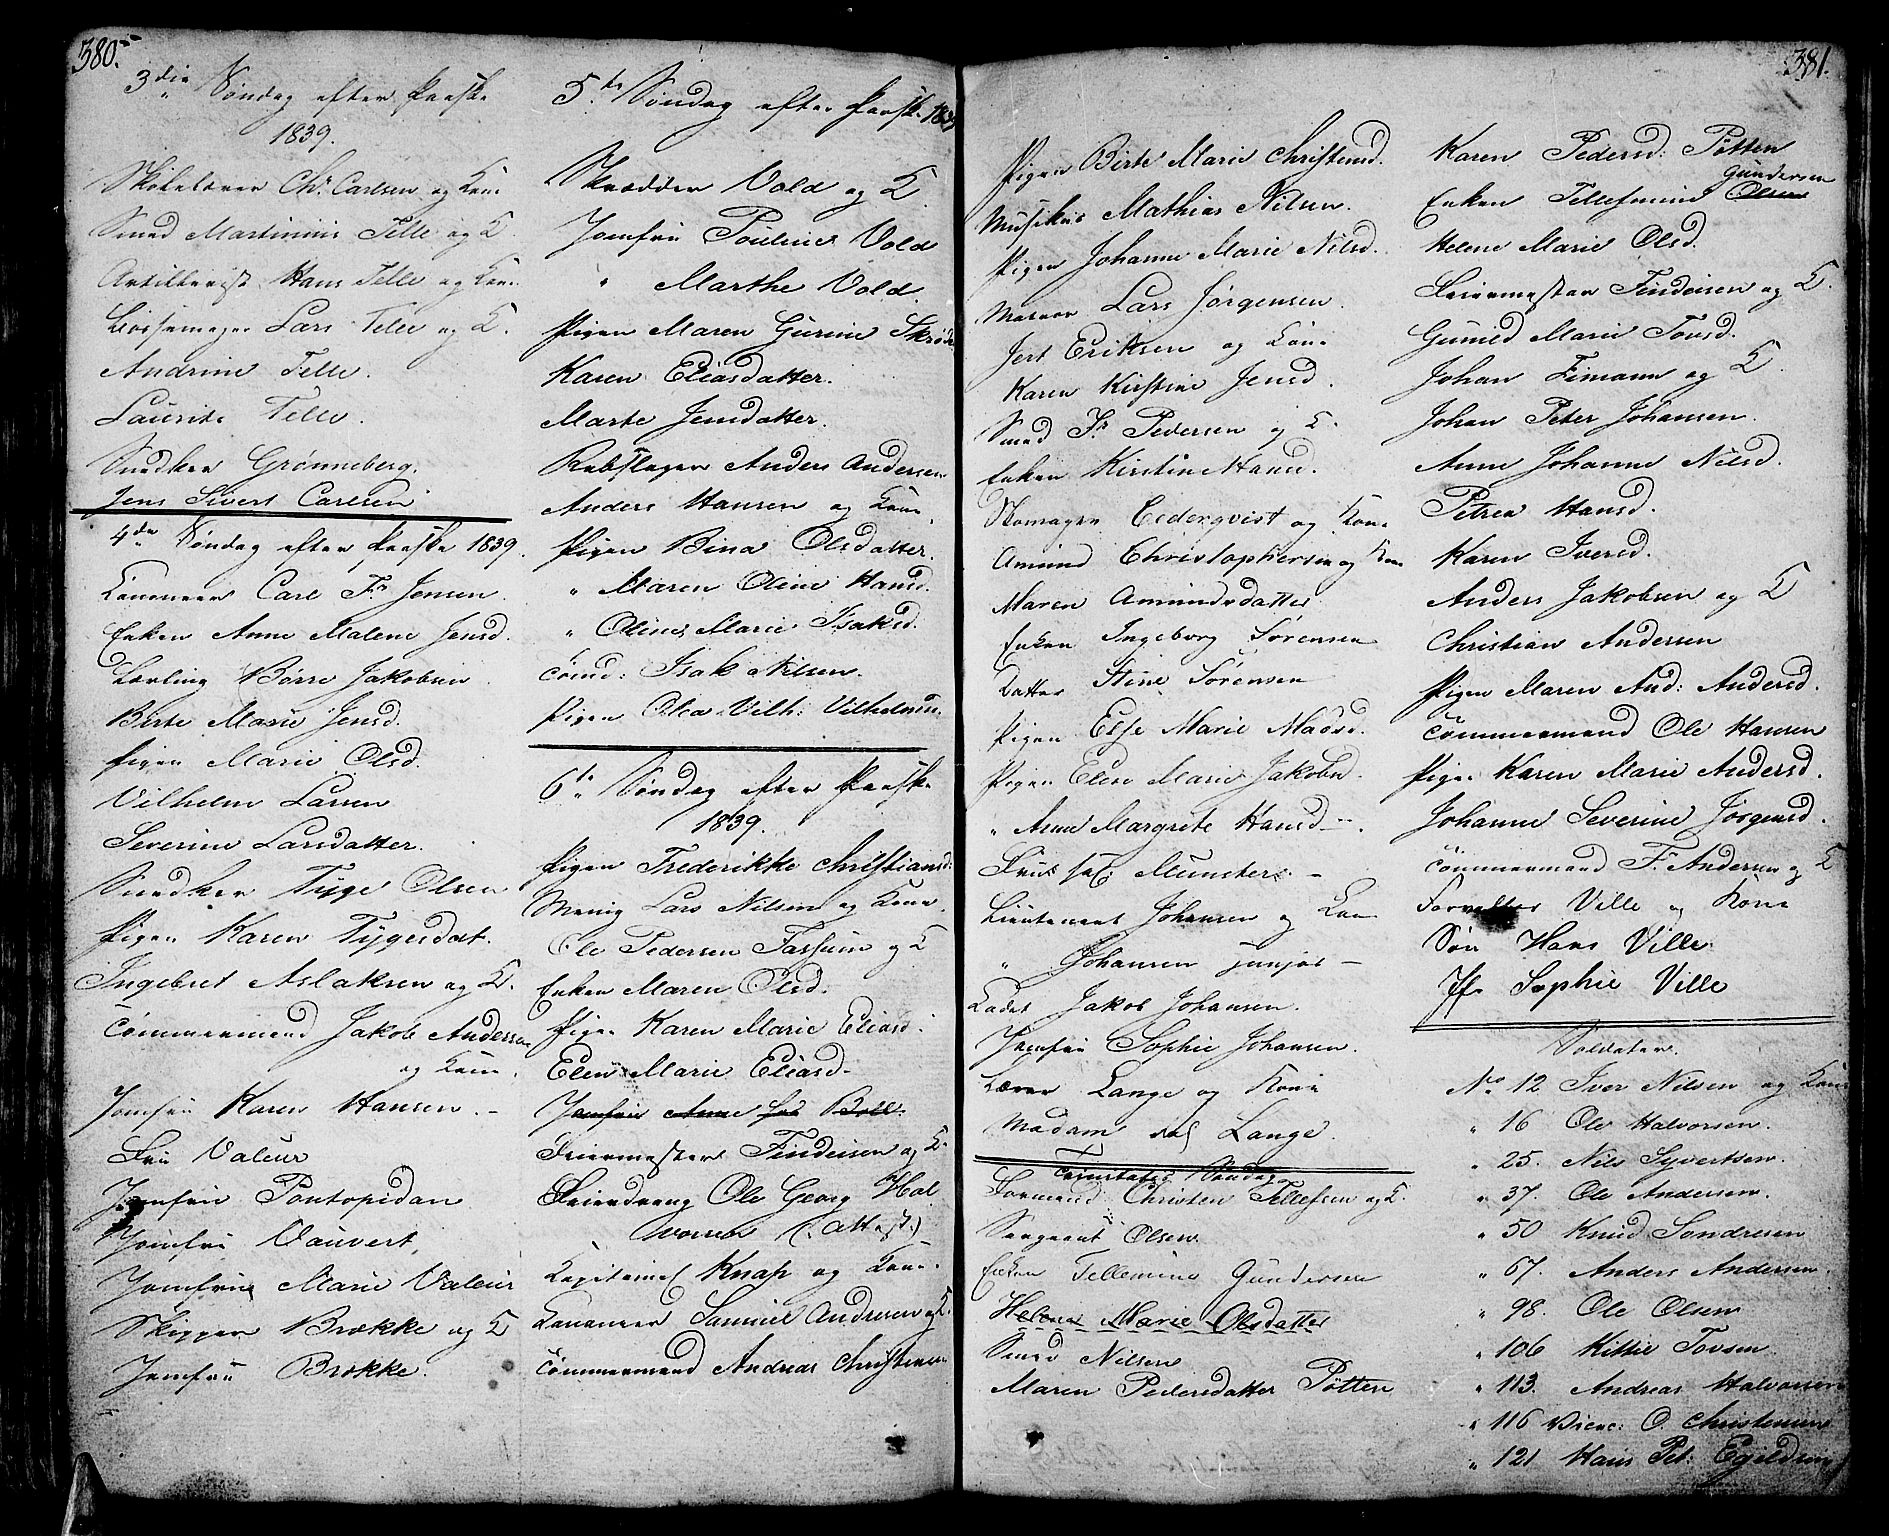 380.
3die Søndag efter Paaske
1839.
Skolelærer Chr. Carlsen og Kone
Smed Martinius Telle og K.
Artillerist Hans Telle og Kone
Bøssemager Lars Telle og K.
Andrine Telle.
Laurits Telle.
Snedker Grønneberg.
Jens Sivert Carlsen
4de Søndag efter Paaske 1839.
Canoneer Carl Fr. Jensen.
Enken Anne Malene Jensd.
Lærling Børre Jakobsen.
Birte Marie Jensd.
Pigen Marie Olsd.
Vilhelm Larsen
Severine Larsdatter.
Snedker Tyge Olsen
Pigen Karen Tygesdat.
Ingebret Aslaksen og K.
Tømmermand Jakob Andersen
og Kone.
Jomfru Karen Hansen. -
Fru Valeur
Jomfru Pontopidan
Jomfru Vauvert.
Jomfrue Marie Valeur
Skipper Brække og K
Jomfru Brække.
5te Søndag efter Paaske 1839
Skrædder Vold og K.
Jomfru Pouline Vold
" Marthe Vold.
Pigen Maren Gurine
Karen Eliasdatter.
Marte Jensdatter.
Rebslager Anders Andersen
Anders Hansen og Kone.
Pigen Bina Olsdatter.
" Maren Oline Hansd.
" Oline Marie Isaksd.
Tømd: Isak Nilsen.
Pigen Olea Vilh: Vilhelmsd.
6te Søndag efter Paaske
1839.
Pigen Frederikke Christiansd:
Menig Lars Nilsen og Kone.
Ole Pedersen Fossum og K
Enken Maren Olsd.
Pigen Karen Marie Eliasd.
Elen Marie Eliasd.
Jomfru Anne Boll.
Feiermester Findeisen og K.
Feierdreng Ole Georg Hal
vorsen (: Attest.)
Kapitaine Knap og Kone.
Kanoneer Samuel Andersen og K.
Tømmermand Andreas Christensen
381.
Pigen Birte Marie Christensd.
Musikus Mathias Nilsen.
Pigen Johanne Marie Nilsd.
Matros Lars Jørgensen.
Jert Eriksen og Kone
Karen Kirstine Jensd.
Smed Fr. Pedersen og K.
Enken Kirstine Hansd.
Skomager Cederqvist og Kone
Amund Christophersen og Kone
Maren Amundsdatter
Enken Ingeborg Sørensen
Datter Stine Sørensen
Pigen Else Marie Madsd.
Pigen Elise Marie Jakobsd.
" Anne Margrete Hansd -.
Frue sal: Munster. -
Lieutenant Johansen og Kone
" Johansen junior -
Cadet Jakob Johansen.
Jomfru Sophie Johansen.
Lærer Lange og Kone
Madam Lange.
Trinitatis Søndag
Formand Christen Tellefsen og K.
Sergeant Olsen.
Enken Tellemine Gundersen
Helene Marie Olsdatter
Smed Nilsen
Maren Pedersdatter Potten
Karen Pedersd: Potten
Gundersen
Enken Tellefmine Olsen
Helene Marie Olsd.
Feiermester Findeisen og K.
Gunild Marie Tovsd.
Johan Fimann og K.
Johan Peter Johansen.
Anne Johanne Nilsd.
Petrea Hansd.
Karen Iversd.
Anders Jakobsen og K
Christian Andersen
Pigen Maren And: Andersd.
Tømmermand Ole Hansen
Pigen Karen Marie Andersd.
Johanne Severine Jørgensd.
Tømmermand F. Andersen og K
Forvalter Ville og Kone
Søn Hans Ville.
Jfr Sophie Ville
Soldater.
No 12 Iver Nilsen og Kone
" 16 Ole Halvorsen.
" 25. Nils Syvertsen.
" 37. Ole Andersen.
" 50 Knud Sondresen
" 67. Anders Andersen.
" 98. Ole Olsen
" 106 Kittil Tovsen.
" 113. Andreas Halvorsen
" 116 O. Christensen
" 121 Hans Pet: